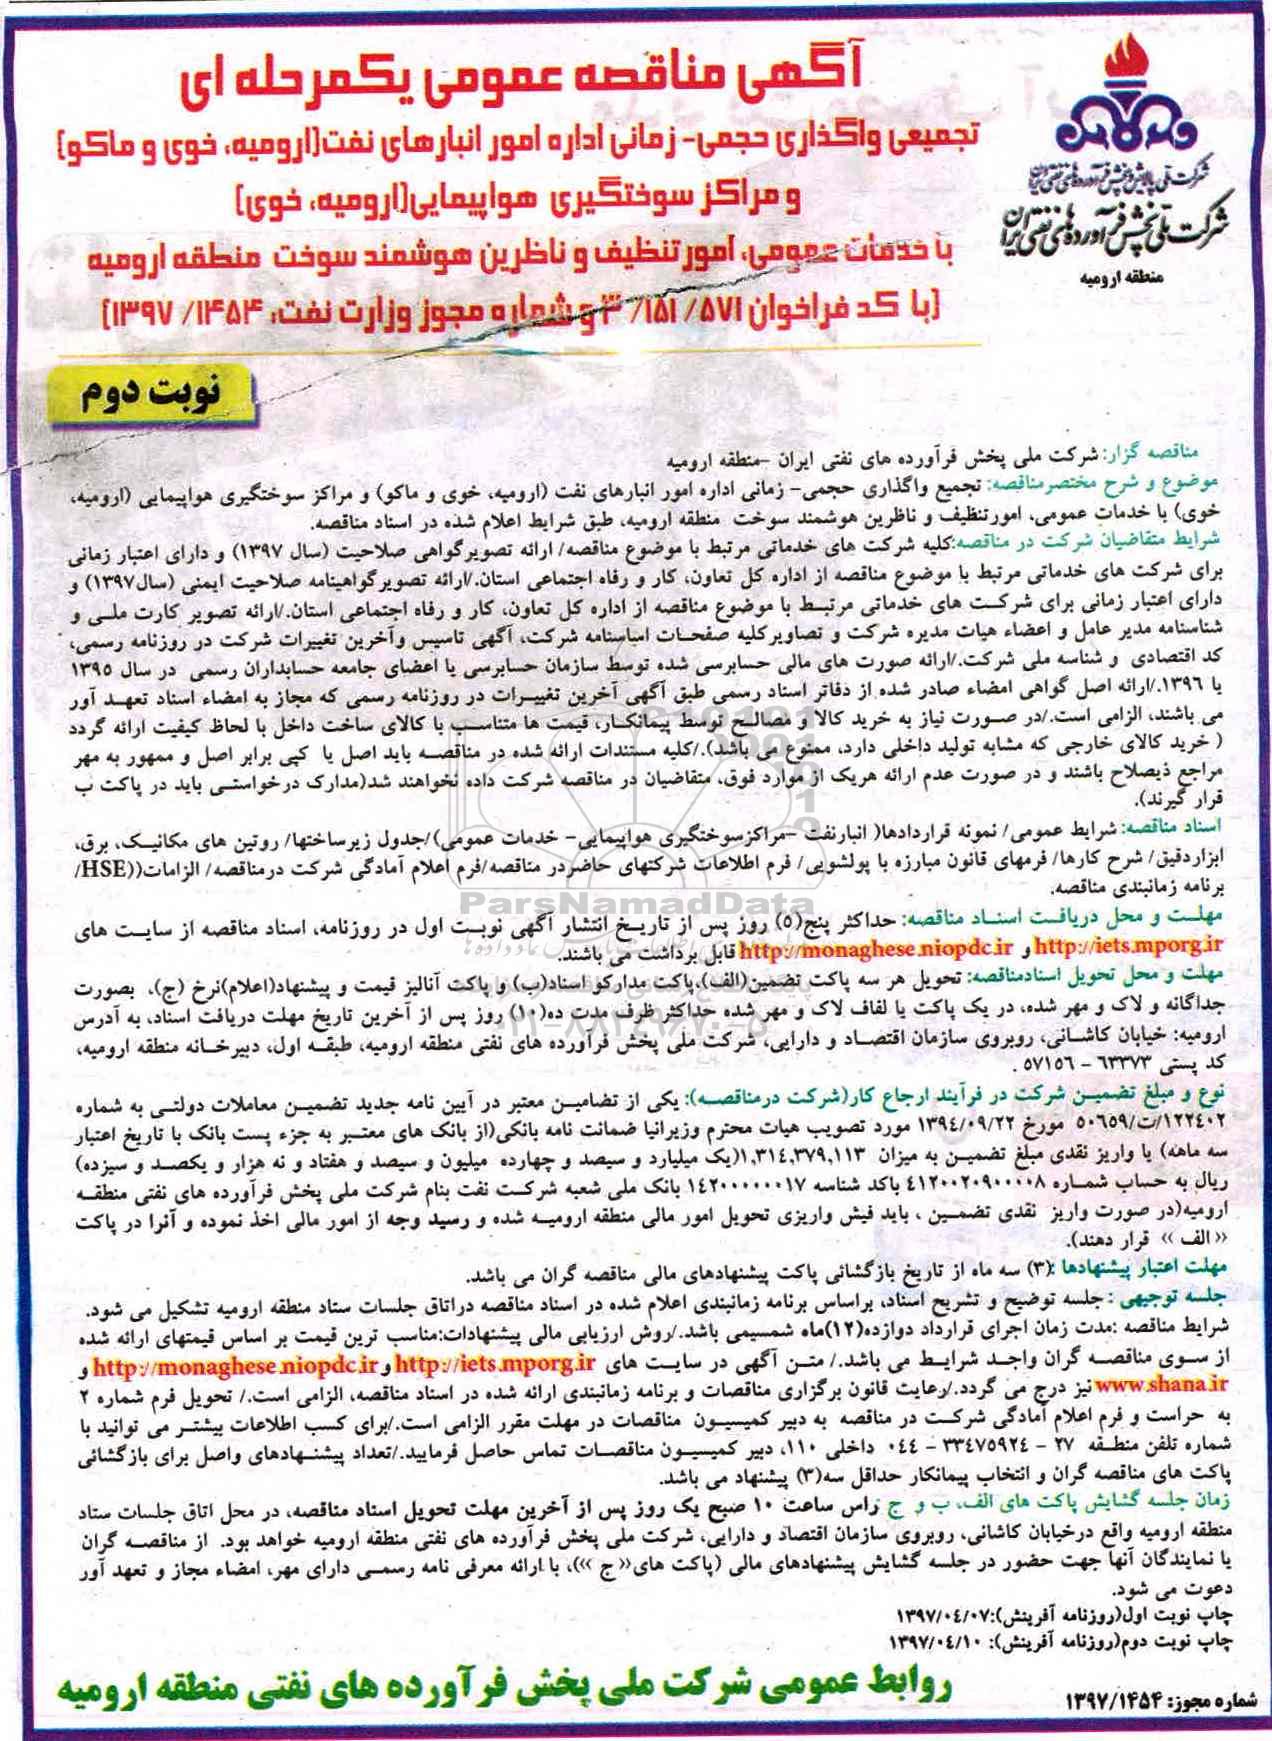 آگهی مناقصه عمومی یکمرحله ای
تجمیعی واگذاری حجمی- زمانی اداره امور انبارهای نفت(ارومیه، خوی و ماکو)
و مراکز سوختگیری هواپیمایی(ارومیه، خوی)
با خدمات عمومی، امور تنظیف و ناظرین هوشمند سوخت منطقه ارومیه
(با کد فراخوان ۳/۱۵۱/۵۷۱ و شماره مجوز وزارت نفت، ۱۳۹۷/۱۴۵۴)
شرکت ملی پالایش و پخش فرآورده های نفتی ایران
شرکت ملی پخش فرآورده های نفتی ایران
منطقه ارومیه
نوبت دوم
مناقصه گزار: شرکت ملی پخش فرآورده های نفتی ایران -منطقه ارومیه
موضوع و شرح مختصرمناقصه: تجمیع واگذاری حجمی- زمانی اداره امور انبارهای نفت (ارومیه، خوی و ماکو) و مراکز سوختگیری هواپیمایی (ارومیه،
خوی) با خدمات عمومی، امورتنظیف و ناظرین هوشمند سوخت منطقه ارومیه، طبق شرایط اعلام شده در اسناد مناقصه.
شرایط متقاضیان شرکت در مناقصه:کلیه شرکت های خدماتی مرتبط با موضوع مناقصه/ ارائه تصویرگواهی صلاحیت (سال ۱۳۹۷) و دارای اعتبار زمانی
برای شرکت های خدماتی مرتبط با موضوع مناقصه از اداره کل تعاون، کار و رفاه اجتماعی استان./ارائه تصویرگواهینامه صلاحیت ایمنی (سال۱۳۹۷) و
دارای اعتبار زمانی برای شرکت های خدماتی مرتبط با موضوع مناقصه از اداره کل تعاون، کار و رفاه اجتماعی استان./ارائه تصویر کارت ملی و
شناسنامه مدیر عامل و اعضاء هیات مدیره شرکت و تصاویرکلیه صفحات اساسنامه شرکت، آگهی تاسیس وآخرین تغییرات شرکت در روزنامه رسمی،
کد اقتصادی و شناسه ملی شرکت./ارائه صورت های مالی حسابرسی شده توسط سازمان حسابرسی یا اعضای جامعه حسابداران رسمی در سال ۱۳۹۵
یا ۱۳۹۶./ارائه اصل گواهی امضاء صادر شده از دفاتر اسناد رسمی طبق آگهی آخرین تغییرات در روزنامه رسمی که مجاز به امضاء اسناد تعهد آور
می باشند، الزامی است./در صورت نیاز به خرید کالا و مصالح توسط پیمانکار، قیمت ها متناسب با کالای ساخت داخل با لحاظ کیفیت ارائه گردد
( خرید کالای خارجی که مشابه تولید داخلی دارد، ممنوع می باشد)./کلیه مستندات ارائه شده در مناقصه باید اصل یا کپی برابر اصل و ممهور به مهر
مراجع ذیصلاح باشند و در صورت عدم ارائه هریک از موارد فوق، متقاضیان در مناقصه شرکت داده نخواهند شد(مدارک درخواستی باید در پاکت ب
قرار گیرند).
اسناد مناقصه: شرایط عمومی/ نمونه قراردادها( انبارنفت -مراکزسوختگیری هواپیمایی- خدمات عمومی)/جدول زیرساختها/ روتین های مکانیک، برق،
ابزاردقیق/ شرح کارها/ فرمهای قانون مبارزه با پولشویی/ فرم اطلاعات شرکتهای حاضردر مناقصه/فرم اعلام آمادگی شرکت درمناقصه/ الزامات((HSE/
برنامه زمانبندی مناقصه.
ParsNamadData
مهلت و محل دریافت اسناد مناقصه: حداکثر پنج(۵) روز پس از تاریخ انتشار آگهی نوبت اول در روزنامه، اسناد مناقصه از سایت های
http://iets.mporg.ir و http://monaghese.niopdc.ir قابل برداشت می باشند.
مهلت و محل تحویل اسنادمناقصه: تحویل هر سه پاکت تضمین(الف)،پاکت مدارکو اسناد(ب) و پاکت آنالیز قیمت و پیشنهاد(اعلام)نرخ (ج)، بصورت
جداگانه و لاک و مهر شده، در یک پاکت یا لفاف لاک و مهر شده حداکثر ظرف مدت ده(۱۰) روز پس از آخرین تاریخ مهلت دریافت اسناد، به آدرس
۰۲۱-۸۸۳۴۹۶۷۰-۵
ارومیه: خیابان کاشانی، روبروی سازمان اقتصاد و دارایی، شرکت ملی پخش فرآورده های نفتی منطقه ارومیه، طبقه اول، دبیرخانه منطقه ارومیه،
کد پستی ۶۳۳۷۳ - ۵۷۱۵۶ .
نوع و مبلغ تضمین شرکت در فرآیند ارجاع کار(شرکت درمناقصه): یکی از تضامین معتبر در آیین نامه جدید تضمین معاملات دولتی به شماره
۱۲۲۴۰۲/ت/۵۰۶۵۹ مورخ ۱۳۹۴/۰۹/۲۲ مورد تصویب هیات محترم وزیرانیا ضمانت نامه بانکی(از بانک های معتبر به جزء پست بانک با تاریخ اعتبار
سه ماهه) یا واریز نقدی مبلغ تضمین به میزان ۱,۳۱۴,۳۷۹,۱۱۳(یک میلیارد و سیصد و چهارده میلیون و سیصد و هفتاد و نه هزار و یکصد و سیزده)
ریال به حساب شماره ۴۱۲۰۰۲۰۹۰۰۰۰۸ باکد شناسه ۱۴۲۰۰۰۰۰۰۱۷ بانک ملی شعبه شرکت نفت بنام شرکت ملی پخش فرآورده های نفتی منطقه
ارومیه(در صورت واریز نقدی تضمین ، باید فیش واریزی تحویل امور مالی منطقه ارومیه شده و رسید وجه از امور مالی اخذ نموده و آنرا در پاکت
« الف » قرار دهند).
مهلت اعتبار پیشنهادها :(۳) سه ماه از تاریخ بازگشائی پاکت پیشنهادهای مالی مناقصه گران می باشد.
جلسه توجیهی : جلسه توضیح و تشریح اسناد، براساس برنامه زمانبندی اعلام شده در اسناد مناقصه دراتاق جلسات ستاد منطقه ارومیه تشکیل می شود.
شرایط مناقصه :مدت زمان اجرای قرارداد دوازده(۱۲)ماه شمسیمی باشد./روش ارزیابی مالی پیشنهادات:مناسب ترین قیمت بر اساس قیمتهای ارائه شده
از سوی مناقصه گران واجد شرایط می باشد./ متن آگهی در سایت های http://iets.mporg.ir و http://monaghese.niopdc.ir و
www.shana.ir نیز درج می گردد./رعایت قانون برگزاری مناقصات و برنامه زمانبندی ارائه شده در اسناد مناقصه، الزامی است./ تحویل فرم شماره ۲
به حراست و فرم اعلام آمادگی شرکت در مناقصه به دبیر کمیسیون مناقصات در مهلت مقرر الزامی است./برای کسب اطلاعات بیشتر می توانید با
شماره تلفن منطقه ۲۷ - ۳۳۴۷۵۹۲۴ - ۰۴۴ داخلی ۱۱۰، دبیر کمیسیون مناقصات تماس حاصل فرمایید./تعداد پیشنهادهای واصل برای بازگشائی
پاکت های مناقصه گران و انتخاب پیمانکار حداقل سه(۳) پیشنهاد می باشد.
زمان جلسه گشایش پاکت های الف، ب و ج راس ساعت ۱۰ صبح یک روز پس از آخرین مهلت تحویل اسناد مناقصه، در محل اتاق جلسات ستاد
منطقه ارومیه واقع درخیابان کاشانی، روبروی سازمان اقتصاد و دارایی، شرکت ملی پخش فرآورده های نفتی منطقه ارومیه خواهد بود. از مناقصه گران
یا نمایندگان آنها جهت حضور در جلسه گشایش پیشنهادهای مالی (پاکت های« ج »)، با ارائه معرفی نامه رسمی دارای مهر، امضاء مجاز و تعهد آور
دعوت می شود.
چاپ نوبت اول(روزنامه آفرینش):۱۳۹۷/۰۴/۰۷
چاپ نوبت دوم(روزنامه آفرینش): ۱۳۹۷/۰۴/۱۰
روابط عمومی شرکت ملی پخش فرآورده های نفتی منطقه ارومیه
شماره مجوز: ۱۳۹۷/۱۴۵۴